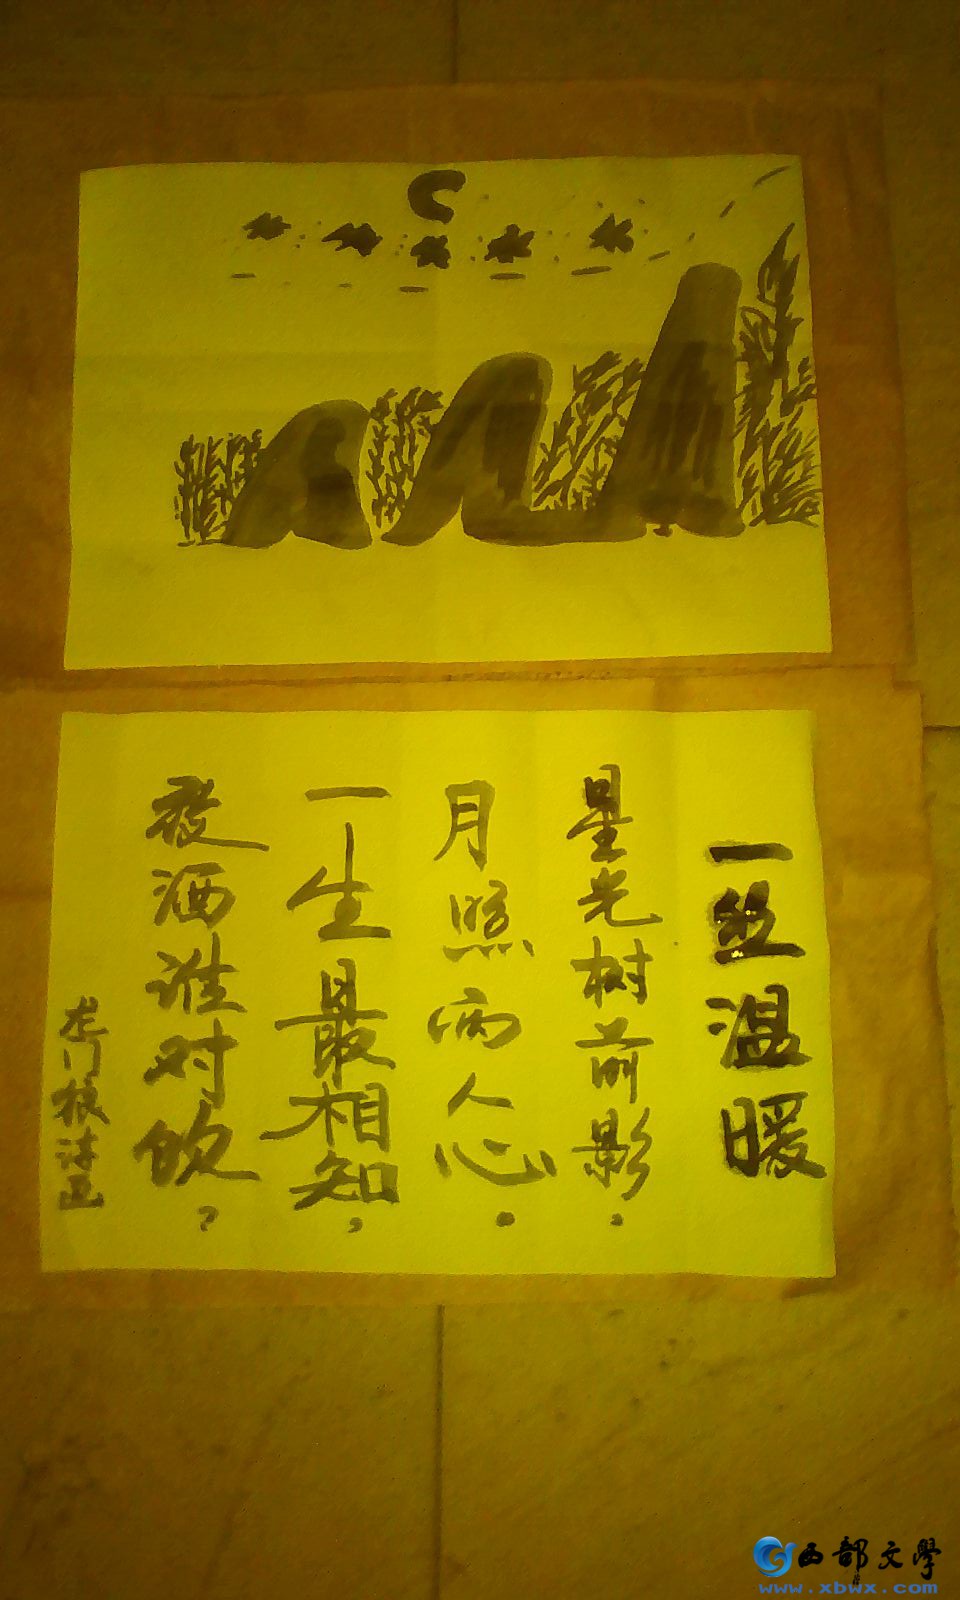 一丝温暖
星光树前影.
月照两人心.
一生最相知,
洒谁对饮?
龙门
西部文學
www.xbwx.com